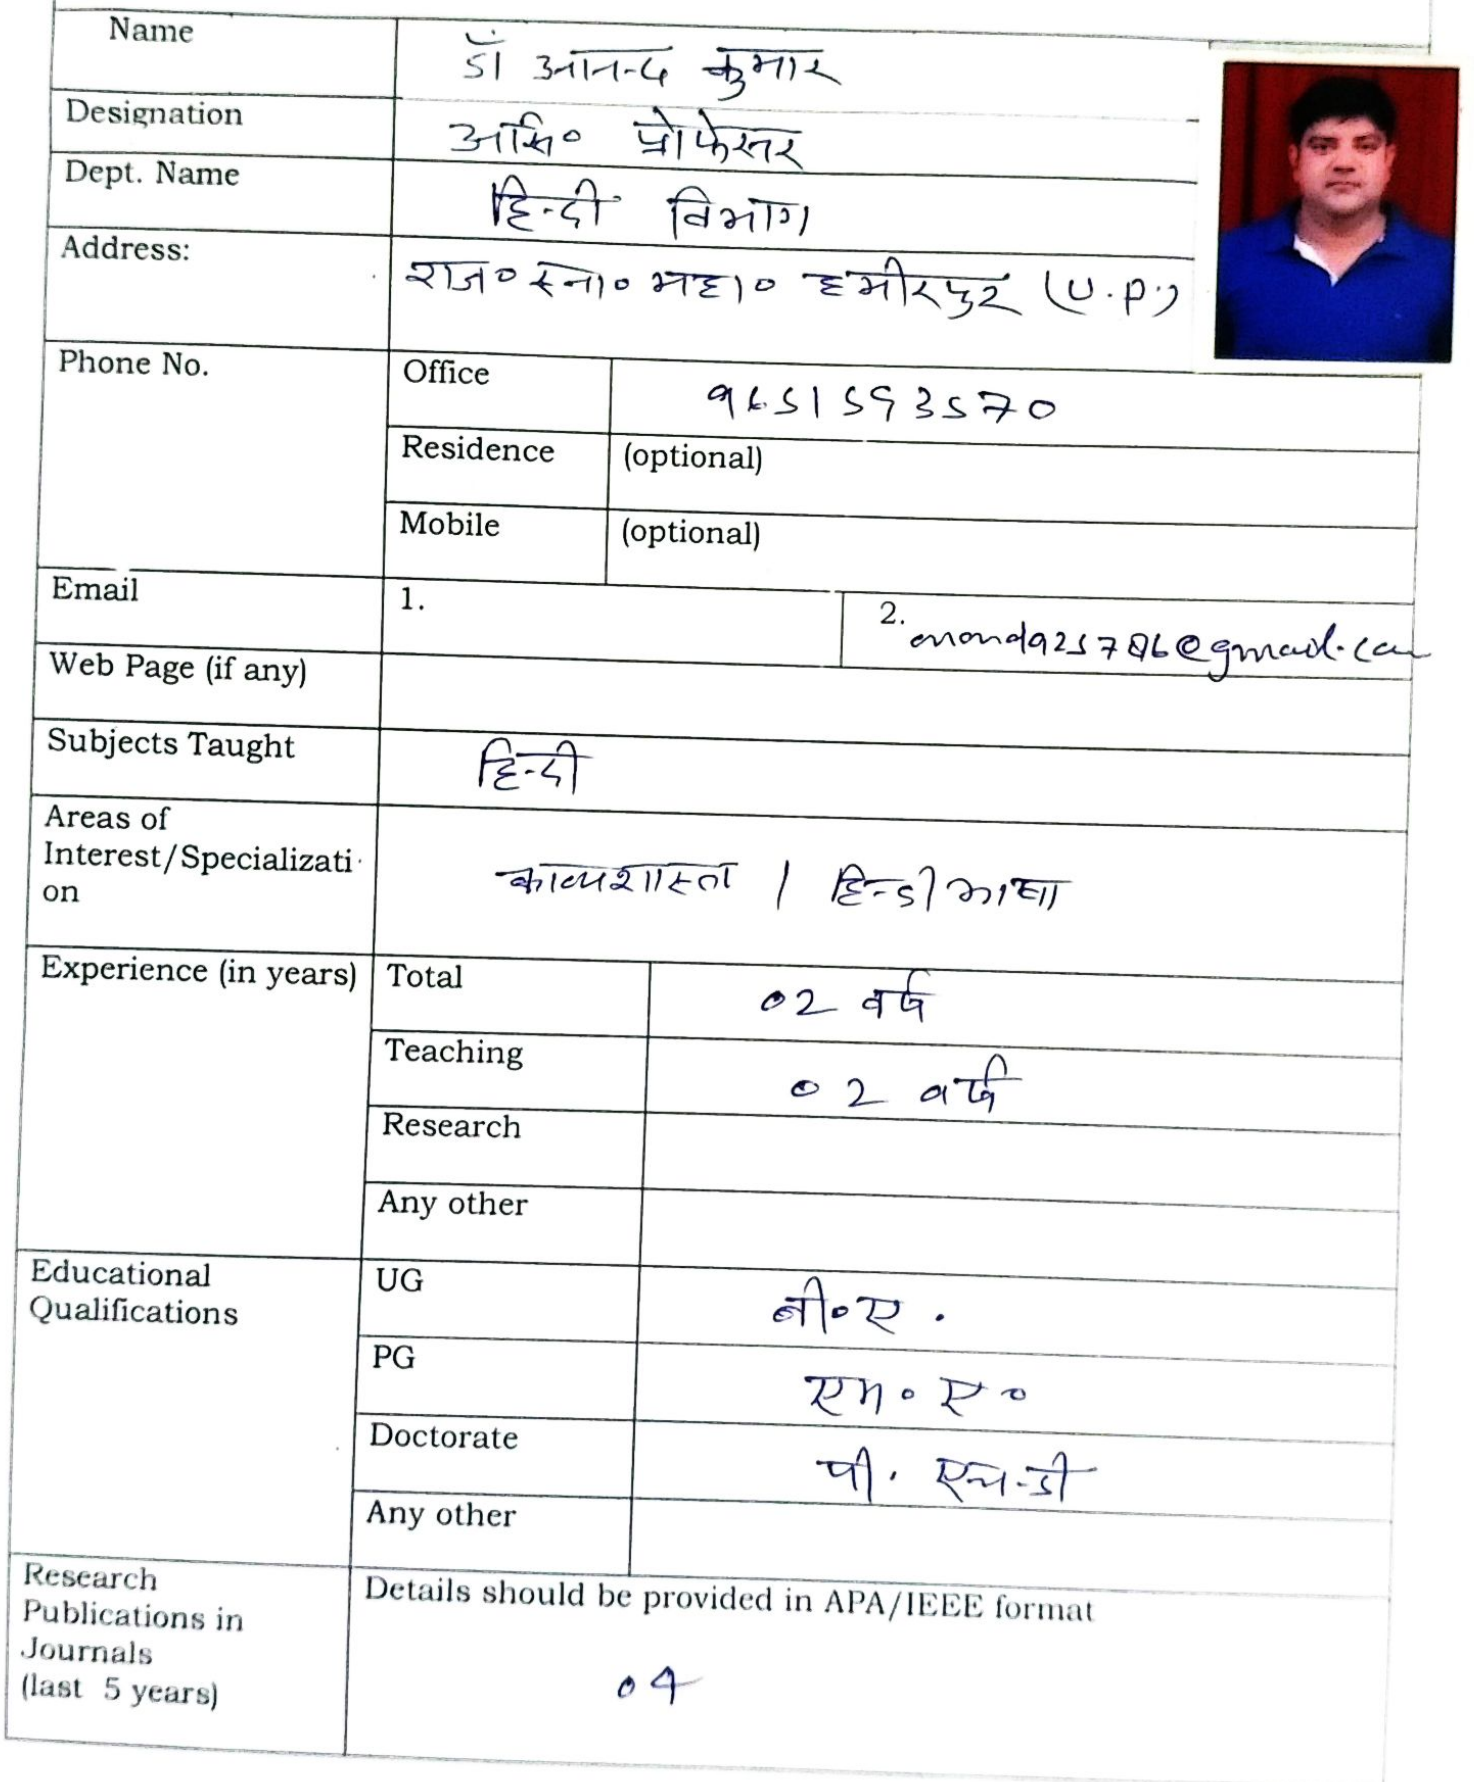 Name डॉ आनन्द कुमार
Designation असि० प्रोफेसर
Dept. Name हिन्दी विभाग
Address: राज० स्ना० महा० हमीरपुर (U.P.)
Phone No. Office 9651593570
Residence (optional)
Mobile (optional)
Email 1. 2.
Web Page (if any)
Subjects Taught हिन्दी
Areas of
Interest/Specializati
on काव्यशास्त्र / हिन्दी भाषा
Experience (in years) Total 02 वर्ष
Teaching 02 वर्ष
Research
Any other
Educational
Qualifications UG बी०ए.
PG एम०ए०
Doctorate पी. एच-डी
Any other
Research
Publications in
Journals
(last 5 years) Details should be provided in APA/IEEE format
04